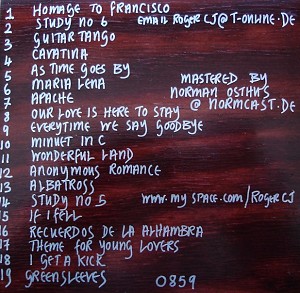 1 HOMAGE TO FRANCISCO
2 STUDY NO 6 EMAIL ROGERCJ@T-ONLINE.DE
3 GUITAR TANGO
4 CAVATINA
5 AS TIME GOES BY
6 MARIA LENA MASTERED BY
7 APACHE NORMAN OSTHUS
8 OUR LOVE IS HERE TO STAY @ NORMCAST.DE
9 EVERYTIME WE SAY GOODBYE
10 MINUET IN C
11 WONDERFUL LAND
12 ANONYMOUS ROMANCE
13 ALBATROSS
14 STUDY NO 5 WWW.MYSPACE.COM/ROGERCJ
15 IF I FELL
16 RECUERDOS DE LA ALHAMBRA
17 THEME FOR YOUNG LOVERS
18 I GET A KICK
19 GREENSLEEVES 0859